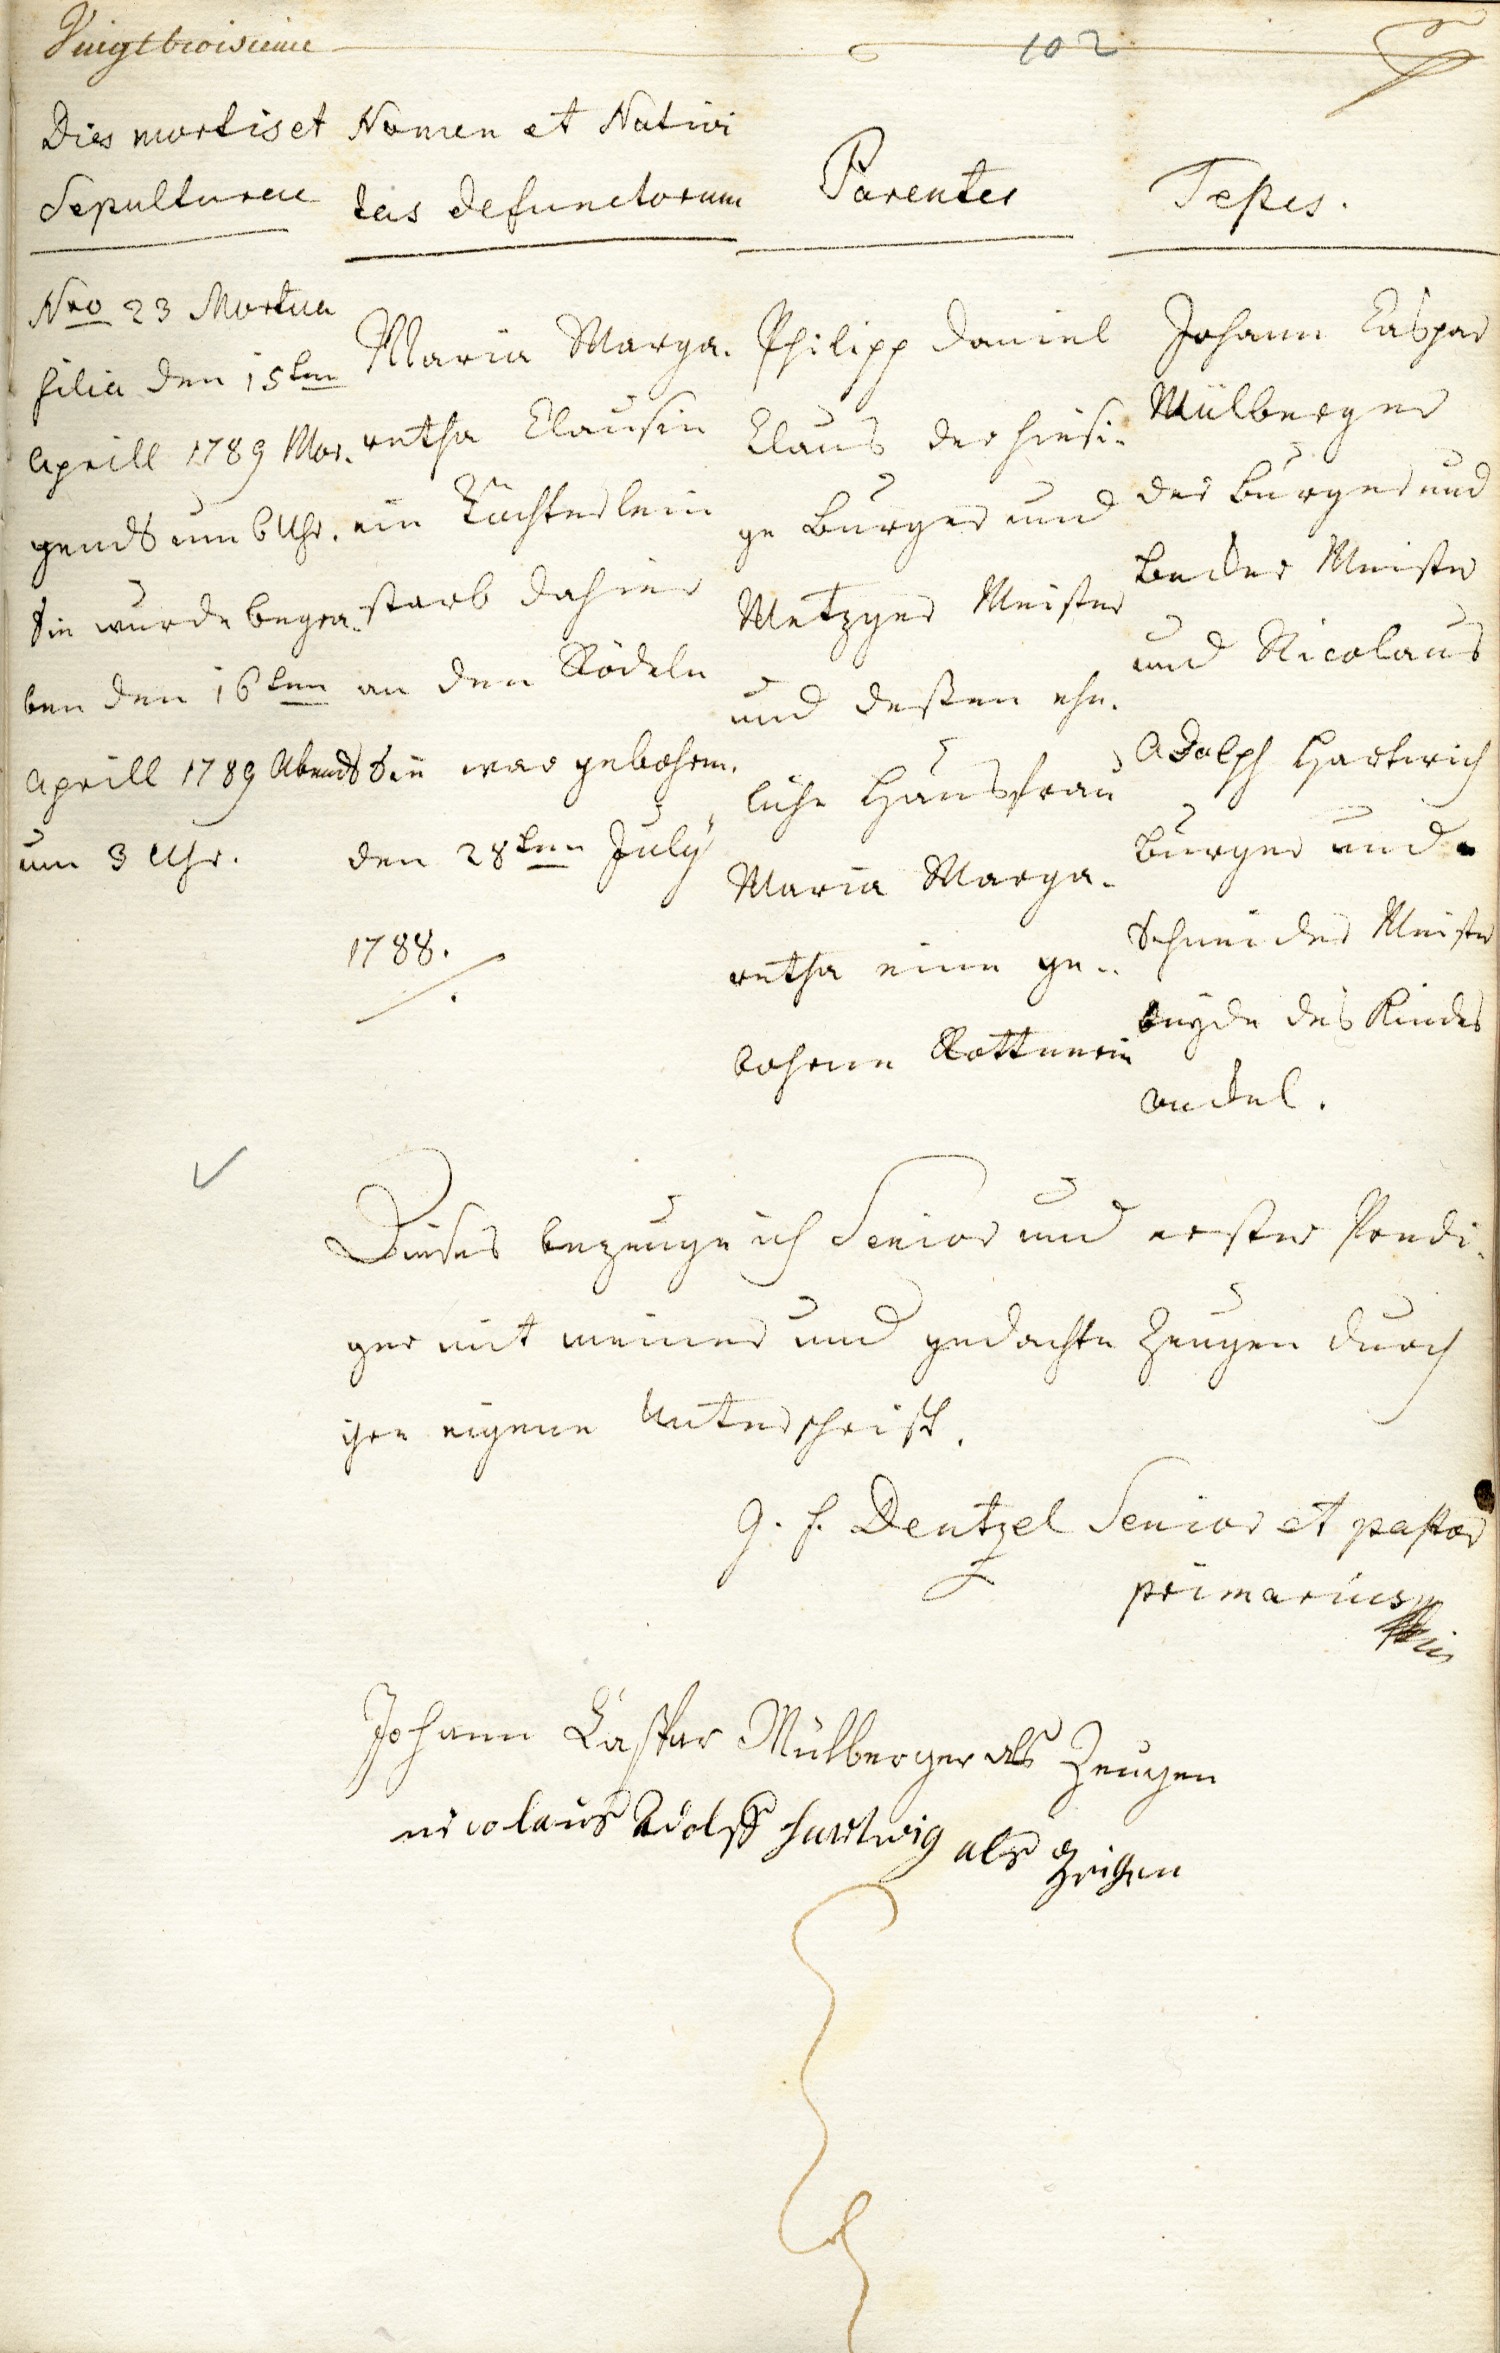 Vingttroisieme
102
Dies mortis et
Sepulturae
Nro 23 Mortua
filia den 15ten
Aprill 1789 Mor.
gends um 6 Uhr.
Sie wurde begra.
ben den 16ten
Aprill 1789 Abends
um 3 Uhr.
Nomen et Nativi
tas defunctorum
Maria Marga.
retha Clausin
ein Töchterlein
starb dahier
an den Rödeln
Sie war gebohren.
den 28ten July
1788.
Parentes
Philipp Daniel
Claus der hiesi-
ge Burger und
Metzger Meister
und deßen ehe.
liche Hausfrau
Maria Marga-
retha eine ge-
bohrne Rottnerin
Testes.
Johann Caspar
Mülberger
der Burger und
Becker Meister
und Nicolaus
Adolph Hartwich
Burger und
Schneider Meister
beyde des Kindes
onckel.
Dieses bezeuge ich Senior und erster Predi-
ger mit meiner und gedachte Zeugen durch
ihre eigene Unterschrift.
G. F. Dentzel Senior et pastor
primarius
Johann Caspar Mülberger als Zeugen
nicolaus Adolff hartwig als Zeigen